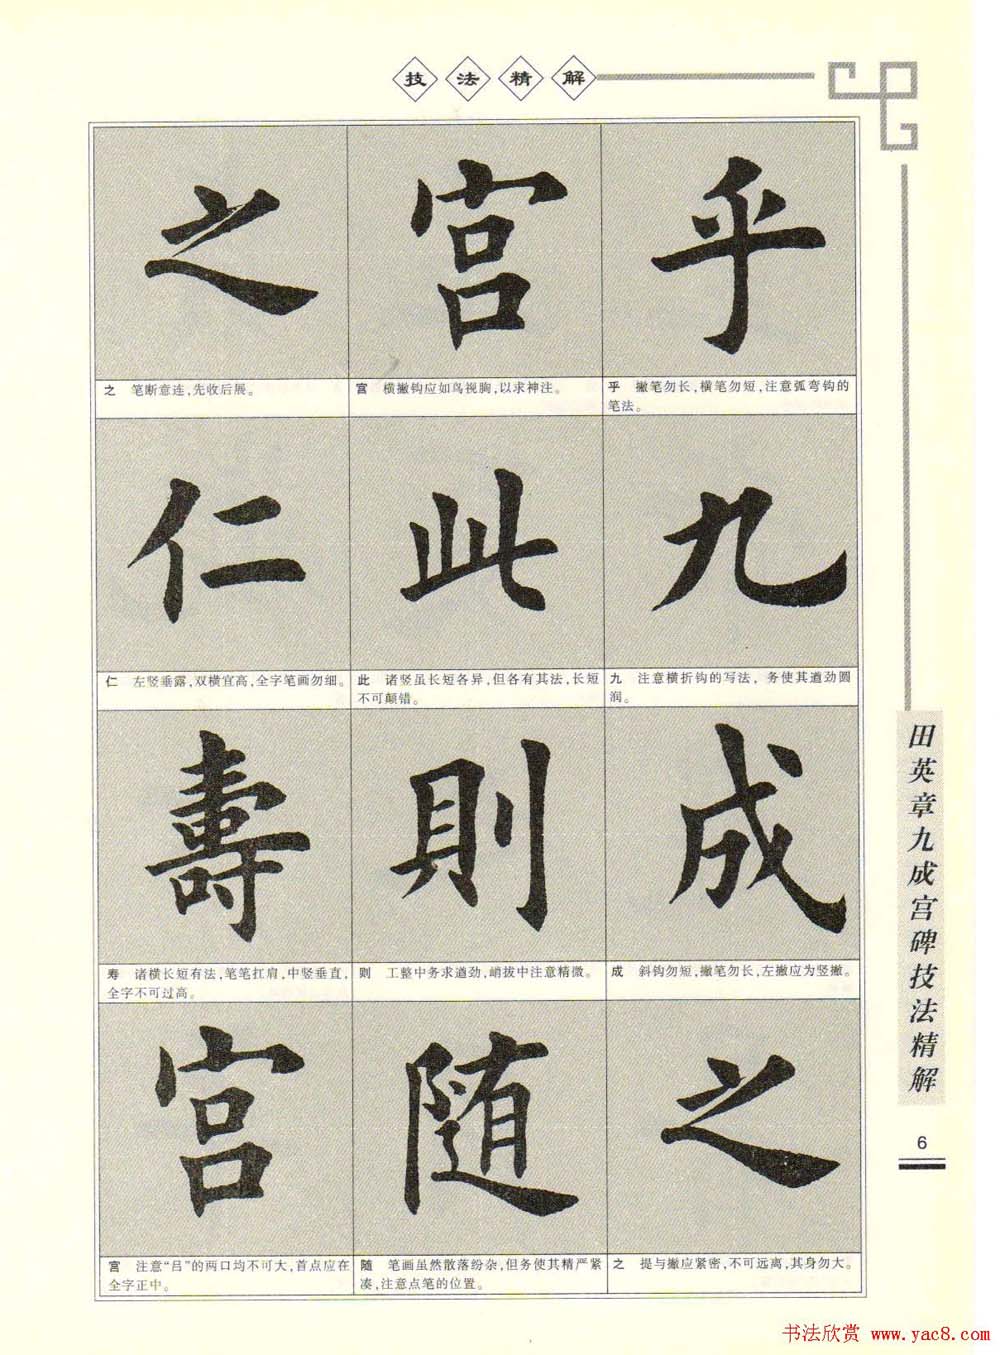 技法精解
乎
宫
之
乎 撇笔勿长，横笔勿短，注意弧弯钩的
笔法。
宫 横撇钩应如鸟视胸，以求神注。
之 笔断意连，先收后展。
九
此
仁
九 注意横折钩的写法，务使其遒劲圆
润。
此 诸竖虽长短各异，但各有其法，长短
不可颠错。
仁 左竖垂露，双横宜高，全字笔画勿细。
成
則
壽
成 斜钩勿短，撇笔勿长，左撇应为竖撇。
则 工整中务求遒劲，峭拔中注意精微。
寿 诸横长短有法，笔笔扛肩，中竖垂直，
全字不可过高。
之
随
宫
之 提与撇应紧密，不可远离，其身勿大。
随 笔画虽然散落纷杂，但务使其精严紧
凑，注意点笔的位置。
宫 注意“吕”的两口均不可大，首点应在
全字正中。
田英章九成宫碑技法精解
6
书法欣赏 www.yac8.com